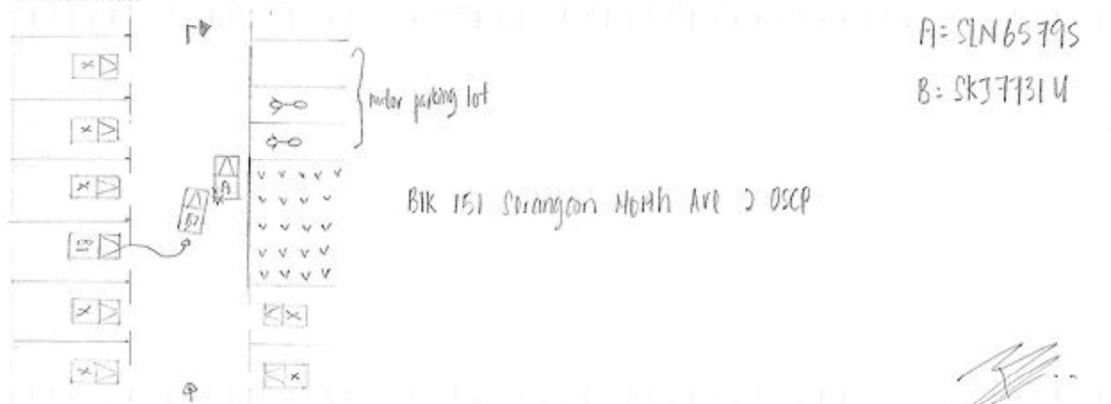 A= SLN6579S
B= SKJ7731U
motor parking lot
x
x
x
A
B2
B1
x
x
x
x
Blk 151 Serangoon North Ave 2 OSCP